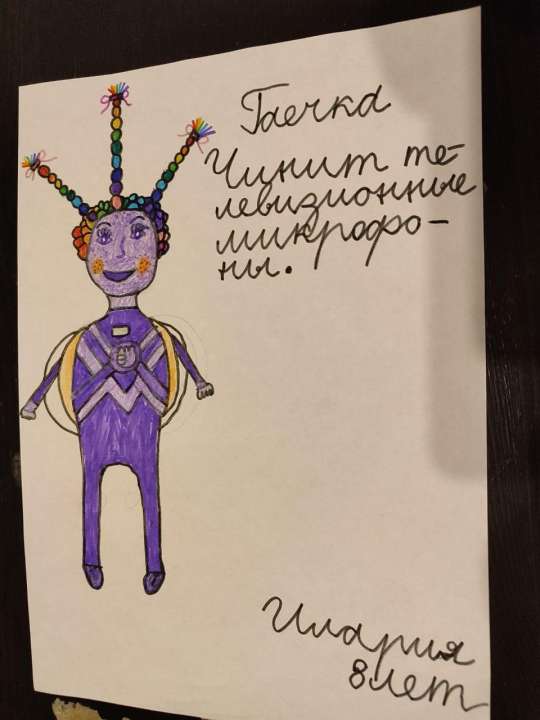 Гаечка
Чинит те-
левизионные
микрофо-
ны.
Илария
8 лет